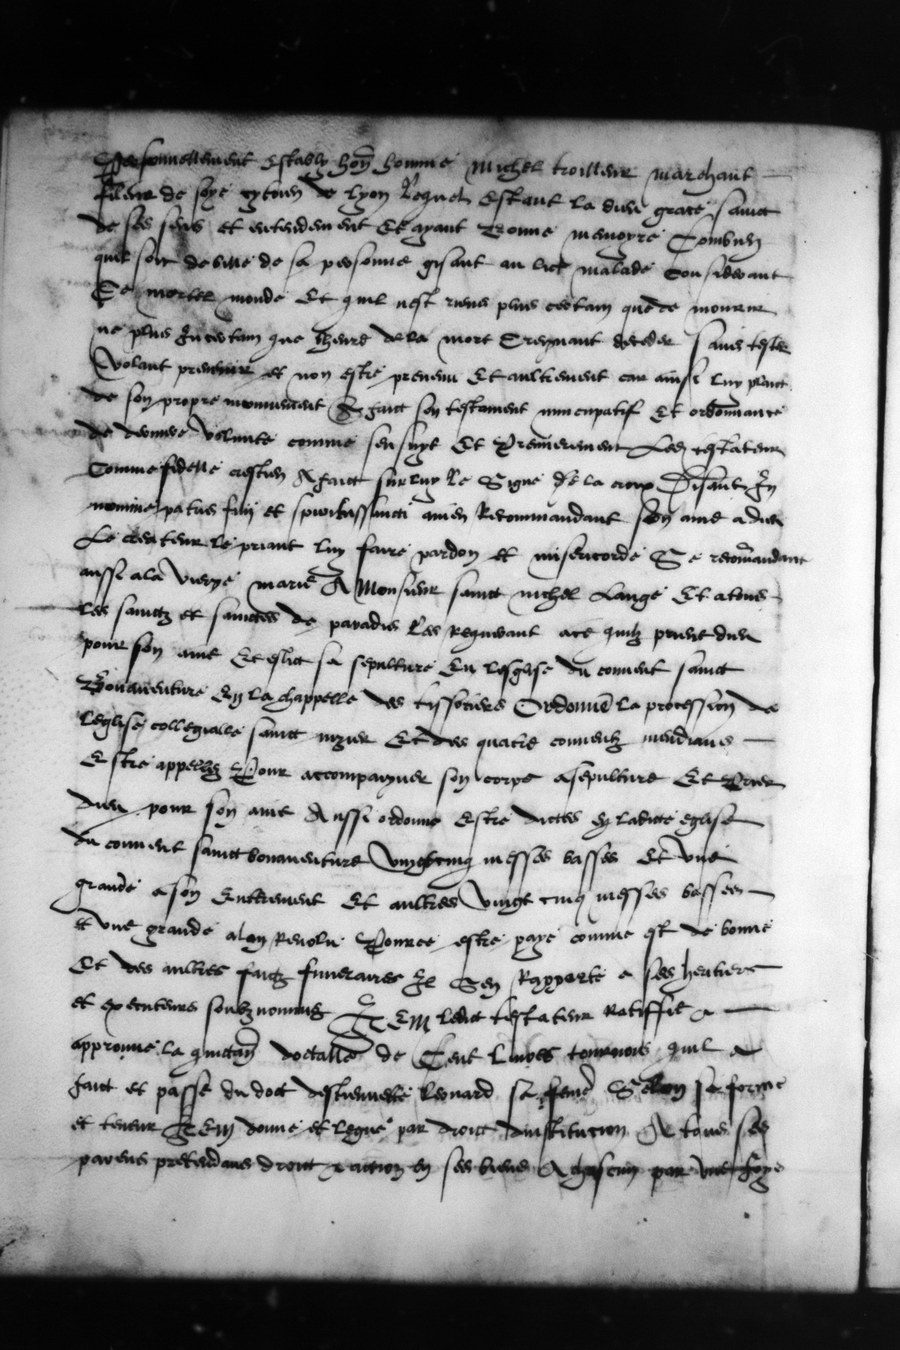 Personnellement estably hon̄ homme michel troilleur marchant
fileur de soye cytoien de lyon lequel estant la dieu grace sainct
de ses sens et entendement et ayant bonne memoyre combien
quil soit debille de sa personne gisant au lict malade considerant
ce mortel monde et quil nest riens plus certain que de mourir
ne plus incertain que lheure de la mort creignant deceder sans tester
volant prevenir et non estre prevenu et aultrement car ainsi luy plaict
de son propre mouvement a faict son testament nuncupatif et ordonnance
de derniere volunte comme sensuyt et premierement led testateur
comme fidelle crestien a faict sur luy le signe de la croix disant in
nomine patris filii et spiritussancti amen recommandant son ame a dieu
le createur le priant luy faire pardon et misericorde se recōmandant
aussi a la vierge marie a monsieur sainct michel lange et a tous
les sainctz et sainctes de paradis les requerant a ce quilz prient dieu
pour son ame et eslict sa sepulture en lesglise du couvent sainct
bonaventure en la chappelle des tissotiers ordonne la procession de
leglise collegialle sainct nizier et des quatre couventz mendians
estre appellez pour accompaigner son corps a sepulture et prier
dieu pour son ame aussi ordonne estre dictes en ladicte eglise
du couvent sainct bonaventure vingtcinq messes basses et une
grande a son enterrement et aultres vingt cinq messes basses
et une grande a lan revolu pource estre paye comme est de bonne
et des aultres faictz funeraires il sen rapporte a ses heritiers
et executeurs soubz nommez Item ledict testateur ratiffie
approuve la quictan̄ doctalle de cent livres tournois quil a
faict et passe du doct destiennette leonard sa feme selon sa forme
et teneur Item donne et legue par droict dinstitucion a tous ses
parens pretendans droict et action en ses biens a chascun par une foys